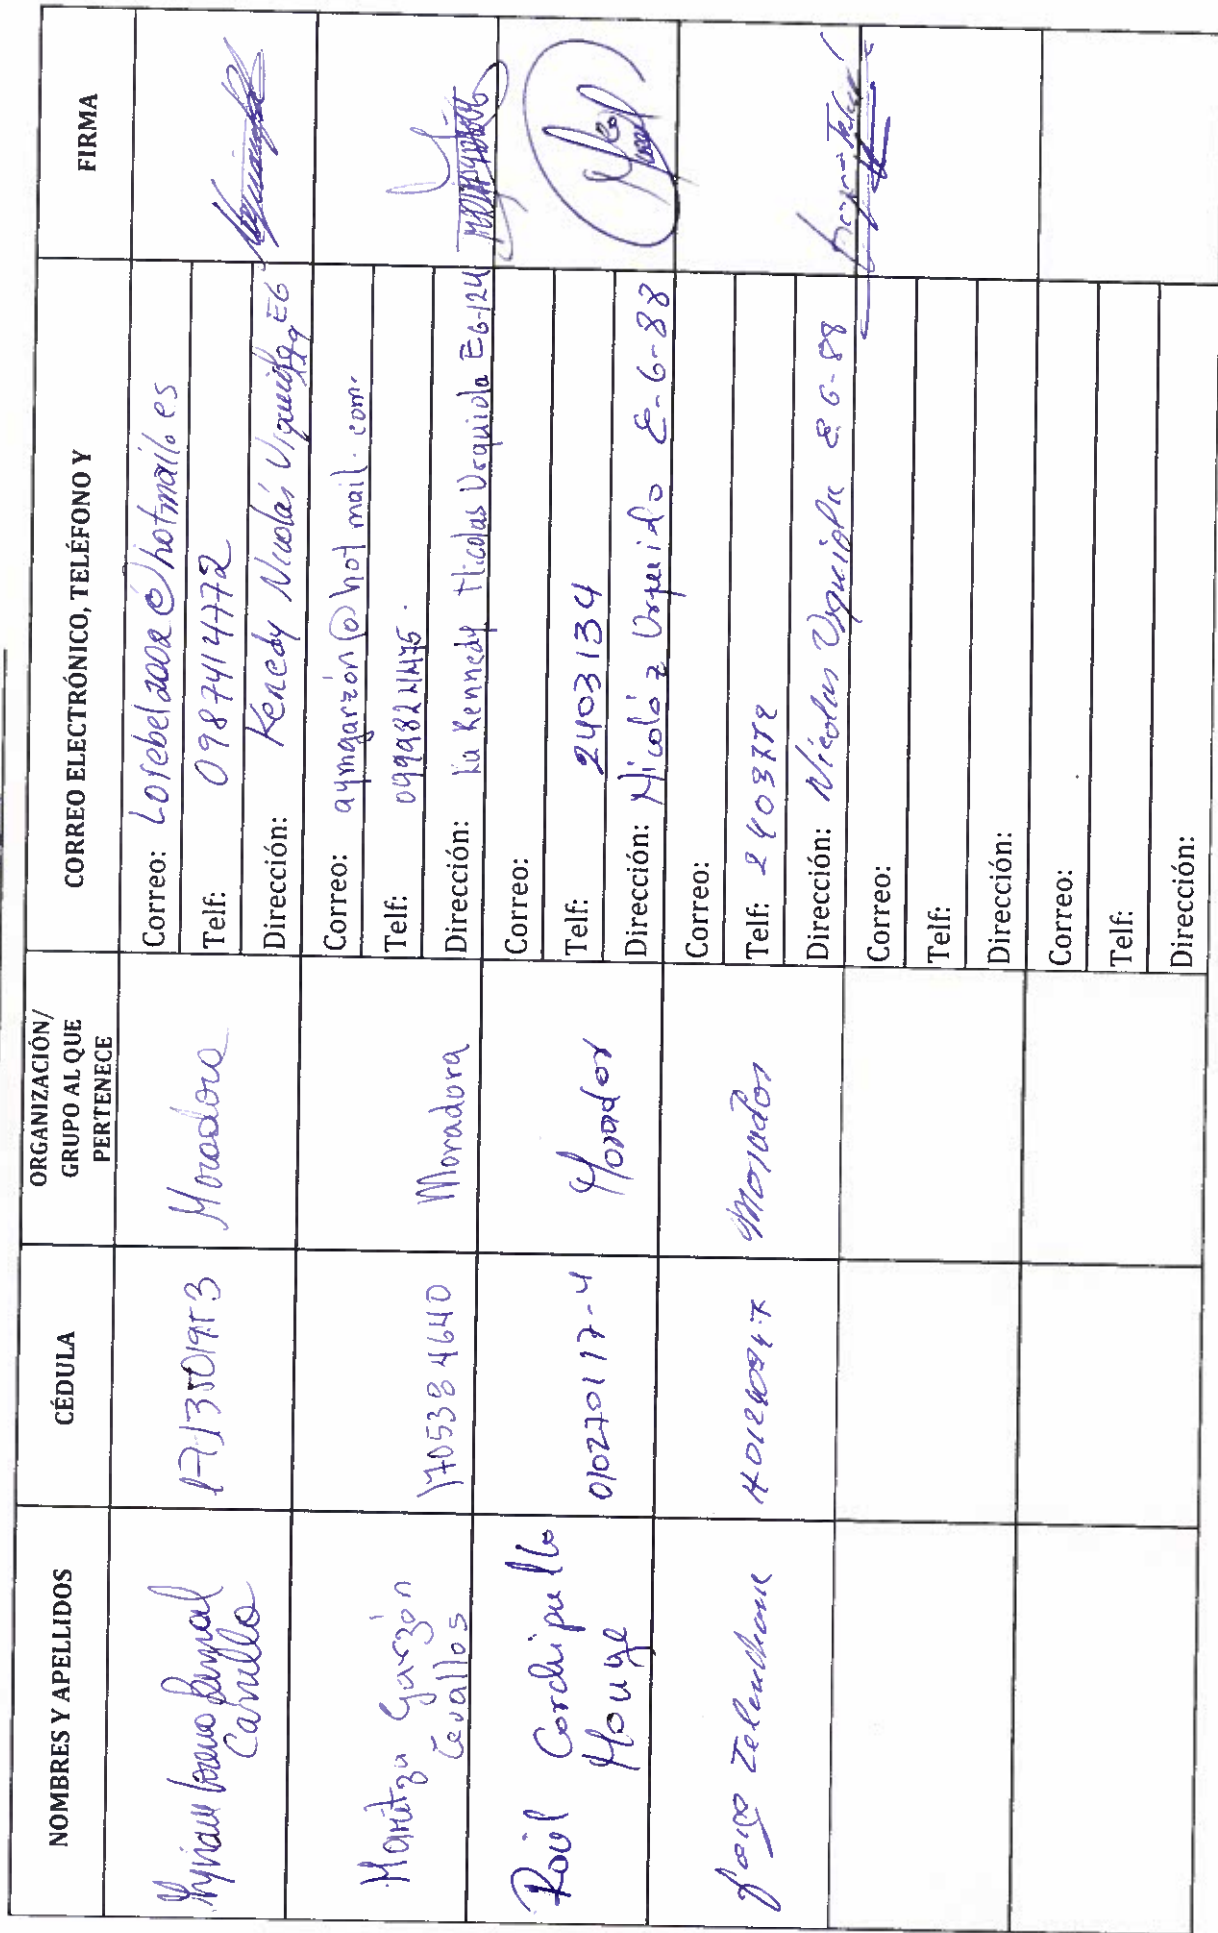 NOMBRES Y APELLIDOS
CÉDULA
ORGANIZACIÓN/
GRUPO AL QUE
PERTENECE
CORREO ELECTRÓNICO, TELÉFONO Y
FIRMA
Carrillo
Moradora
Correo: Lorebel2002@hotmail.es
Telf: 0987414772
Dirección: Kenedy Nicolás E6
Maritza Garzón
Cevallos
1705384640
Moradora
Correo: aymgarzón@hotmail.com.
Telf:
Dirección: La Kennedy Nicolas Urquiola E6-124
Raúl
010270117-4
Morador
Correo:
Telf: 2403134
Dirección: E-6-88
Jorge
Morador
Correo:
Telf: 2403772
Dirección: Nicolas Urquiola E6-88
Correo:
Telf:
Dirección:
Correo:
Telf:
Dirección: